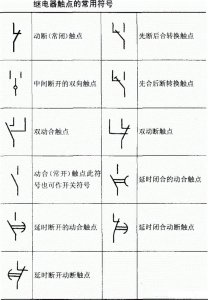 继电器触点的常用符号
动断(常闭)触点
先断后合转换触点
中间断开的双向触点
先合后断转换触点
双动合触点
双动断触点
动合(常开)触点此符
号也可作开关符号
延时闭合的动合触点
延时断开的动合触点
延时闭合动断触点
延时断开动断触点